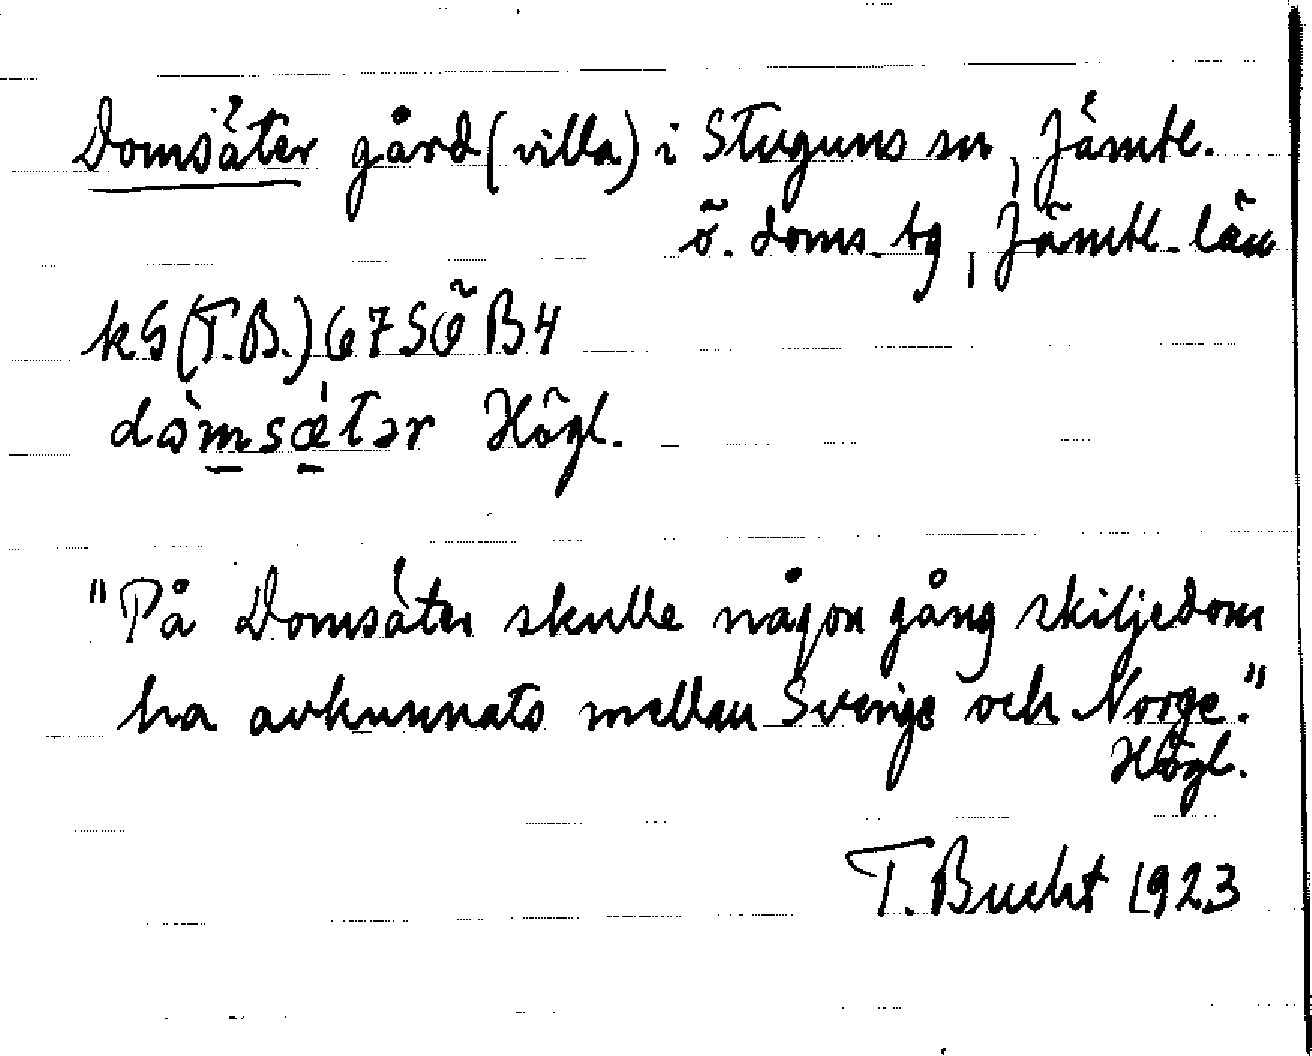 Domsäter gård (villa) i Stuguns sn, Jämtl.
ö. doms. tg, Jämtl. län
kG (T.B.) 67 SÖ B4
dòmsǽtər Högl.
"På Domsäter skulle någon gång skiljedom
ha avkunnats mellan Sverige och Norge."
Högl.
T. Bucht 1923